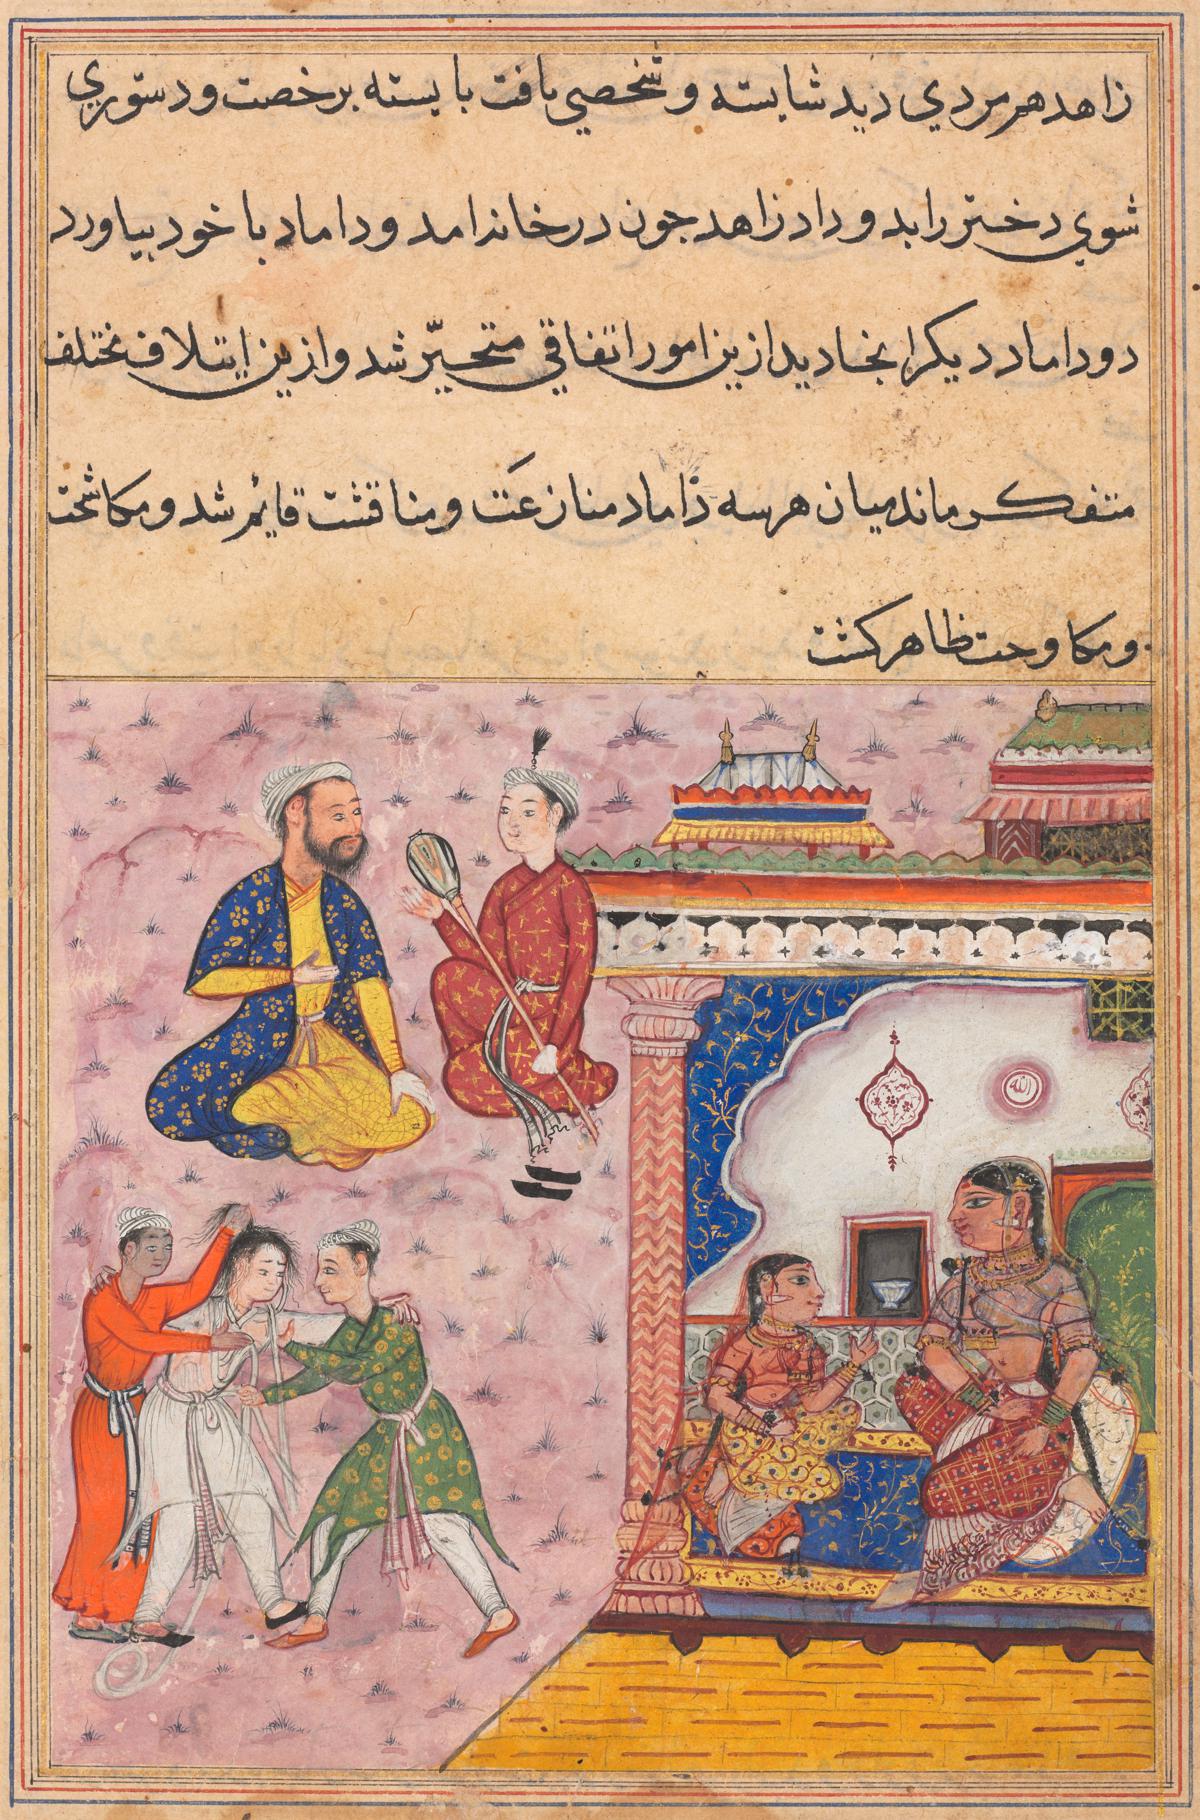 زاهد هر مردي ديد شايسته و شخصي يافت بايسته بر خصت ودستوري
شوي دختر رابد و داد زاهد جون در خانه امد و داماد با خود بياورد
دو داماد ديكر انجا ديد ازين امور اتفاقي متحيّر شد و ازين ايتلاف مختلف
متفكر ماند ميان هر سه داماد منازعَت و مناقشت قايم شد و مكاشحت
و مكاوحت ظاهر كشت
الله